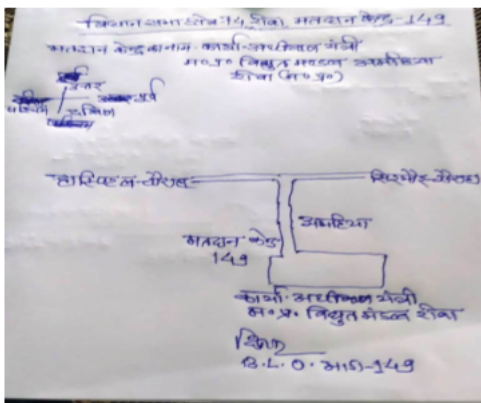 विधान सभा क्षेत्र 74 रीवा मतदान केन्द्र-149
मतदान केन्द्र का नाम- कार्या. अधीक्षण यंत्री
म०प्र० विद्युत मण्डल अमहिया
रीवा (म०प्र०)
उत्तर
पश्चिम
पूर्व
दक्षिण
हास्पिटल-चौराहा
सिरमौर-चौराहा
अमहिया
मतदान केन्द्र
149
कार्या. अधीक्षण यंत्री
म०प्र० विद्युत मंडल रीवा
B.L.O. भाग-149